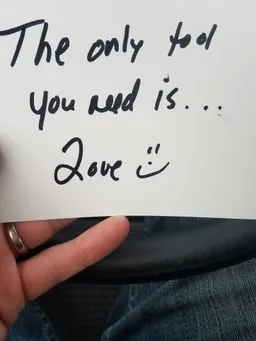 The only tool
you need is...
Love :)